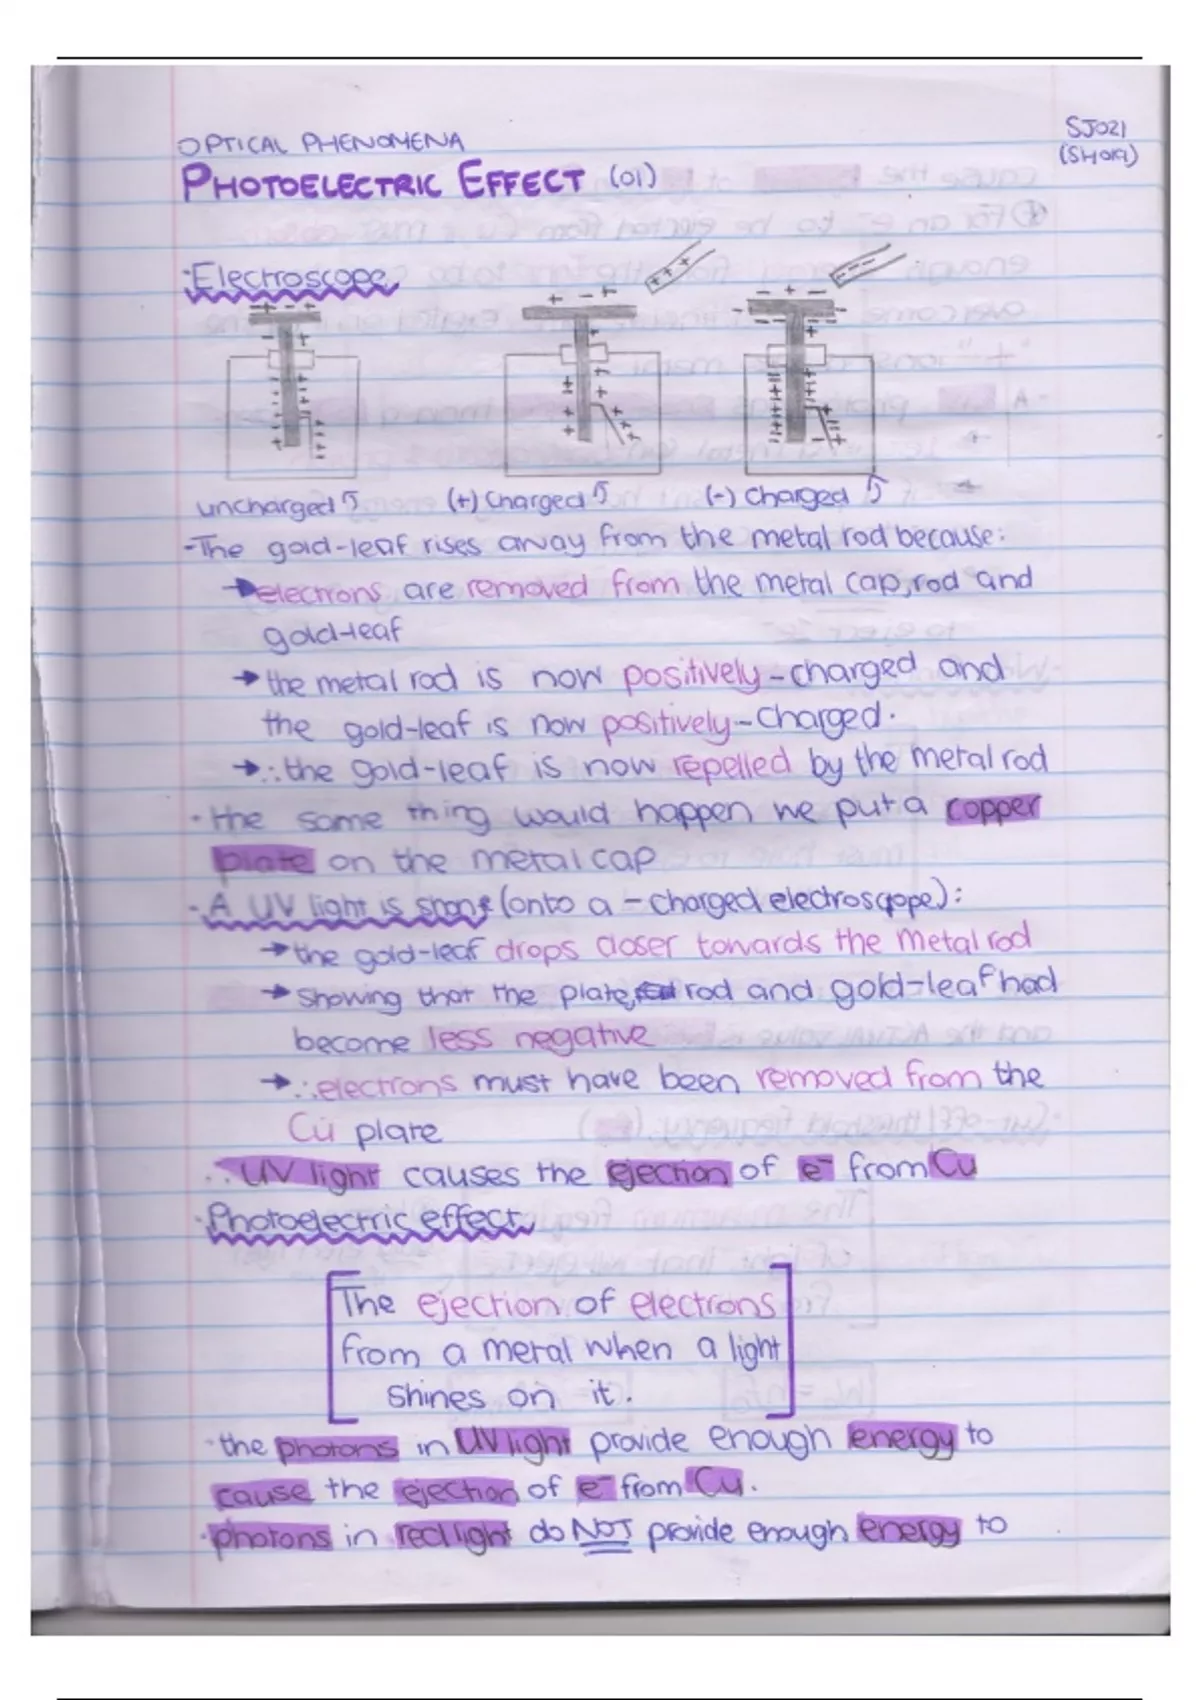 OPTICAL PHENOMENA
SJ021
(SH019)
PHOTOELECTRIC EFFECT (01)
·Electroscope
uncharged (+) charged (-) charged
-The gold-leaf rises away from the metal rod because:
→electrons are removed from the metal cap, rod and
gold-leaf
→the metal rod is now positively-charged and
the gold-leaf is now positively-charged.
→∴the gold-leaf is now repelled by the metal rod
·the same thing would happen we put a copper
plate on the metal cap
-A UV light is shone (onto a - charged electroscope):
→the gold-leaf drops closer towards the metal rod
→showing that the plate, rod and gold-leaf had
become less negative
→∴electrons must have been removed from the
Cu plate
∴UV light causes the ejection of e⁻ from Cu
·Photoelectric effect
The ejection of electrons
from a metal when a light
shines on it.
·the photons in UV light provide enough energy to
cause the ejection of e⁻ from Cu.
·photons in red light do NOT provide enough energy to